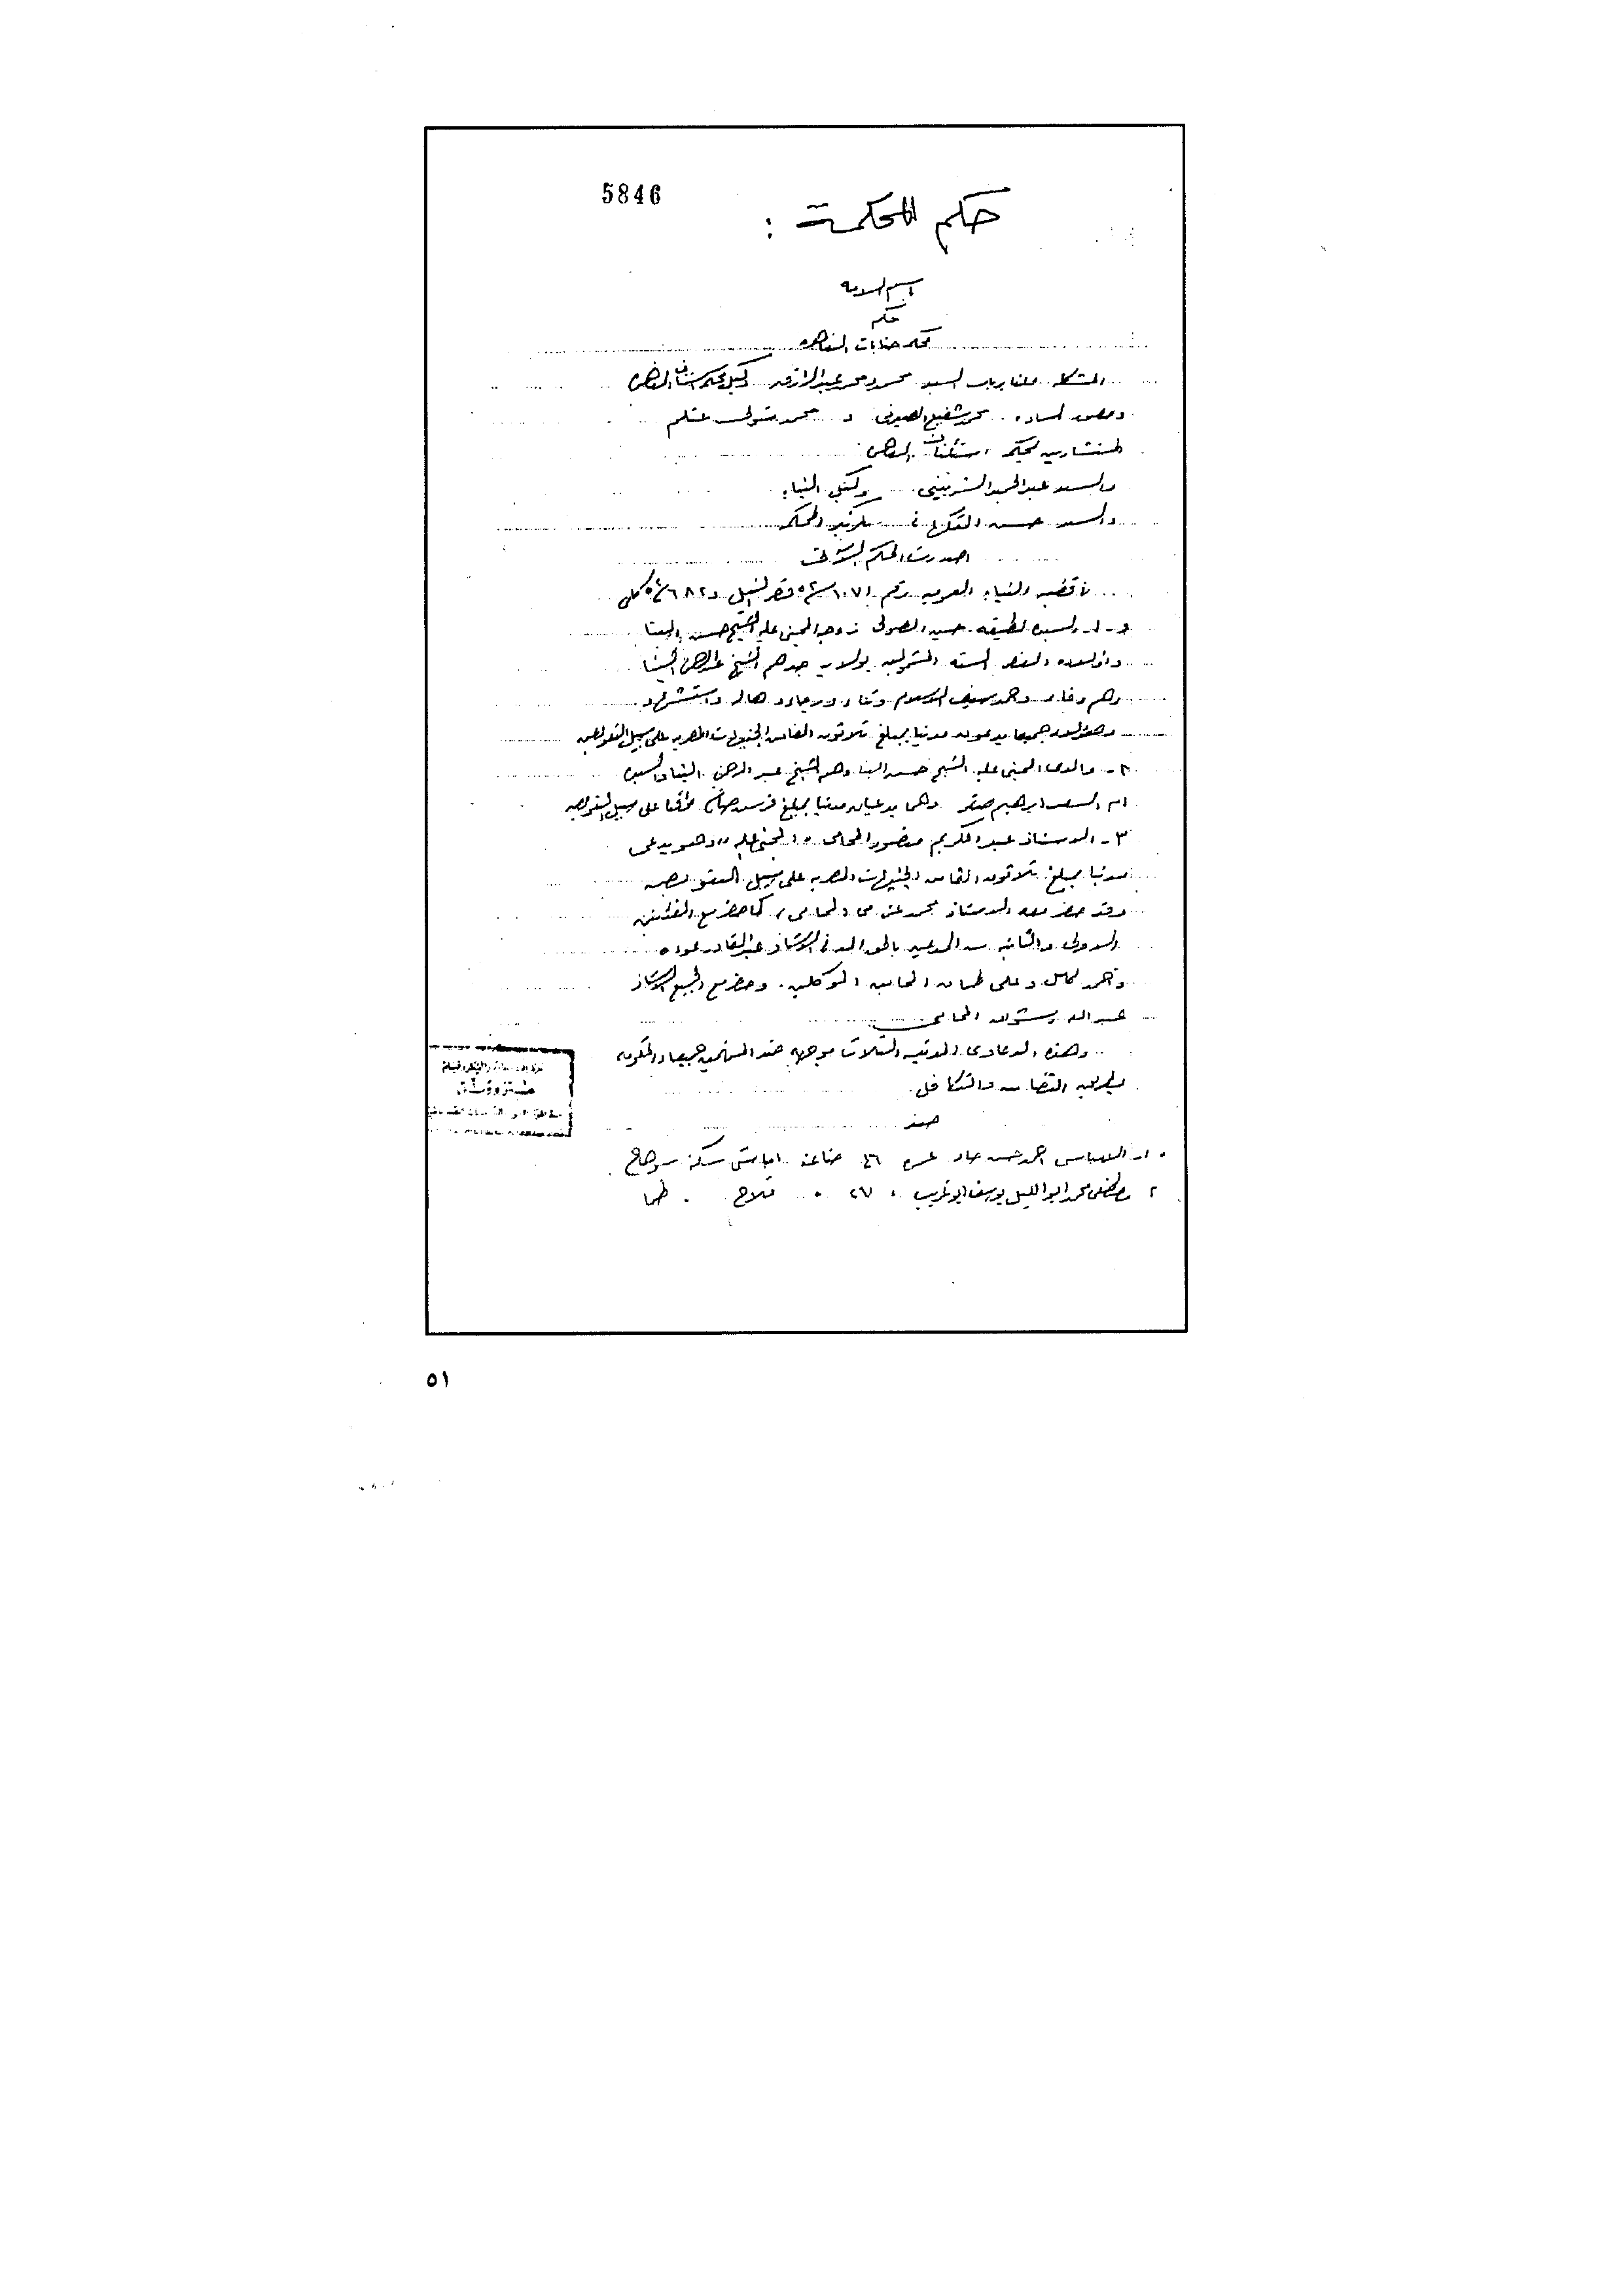 5846
حكم المحكمة :
باسم الامه
حكم
محكمة جنايات القاهره
المشكله علنا برياسه السيد محمود محمد عبد الرازق وكيل محكمة استئناف القاهره
وحضور الساده محمد شفيع الصيرفى و محمد متولى عتلم
المستشارين بمحكمة استئناف القاهره
والسيد عبد الحميد الشربينى وكيل النيابه
والسيد حسن سكرتير المحكمه
اصدرت الحكم الآتى
فى قضيه النيابه العموميه رقم ١٠٧١ سنة ٥٢ قصر النيل و ٦٨٢ سنة ٥٢ كلى
و ١- السيده لطيفه حسين الصولى زوجة المجنى عليه الشيخ حسن البنا
واولاده القصر السته المشمولين بولاية جدهم الشيخ عبد الرحمن البنا
وهم وفاء واحمد سيف الاسلام وثناء ورجاء وهاله واستشهاد
وهؤلاء جميعا يدعون مدنيا بمبلغ ثلاثون الفا من الجنيهات المصريه على سبيل التعويض
٢- والدى المجنى عليه الشيخ حسن البنا وهم الشيخ عبد الرحمن البنا والسيده
ام السعد ابراهيم صقر وهما يدعيان مدنيا بمبلغ قرش صاغ مؤقتا على سبيل التعويض
٣- الاستاذ عبد الكريم منصور المحامى " المجنى عليه " وهو يدعى
مدنيا بمبلغ ثلاثون الفا من الجنيهات المصريه على سبيل التعويض
وقد حضر معه الاستاذ محمد المحامى كما حضر مع الفئتين
الاولى والثانيه من المدعين بالحق المدنى الاستاذ عبد القادر عوده
واحمد كامل وعلى المحامين الموكلين. وحضر مع الجميع الاستاذ
عبد الله رشوان المحامى
وهذه الدعاوى المدنيه الثلاث موجهه ضد المتهمين جميعا والحكومه
بطريق التضامن والتكافل
ضد
١- الياس احمد حسن جاد عمره ٤٦ صناعته امباشى سكنه سوهاج
٢ مصطفى محمد ابو الليل يوسف ابو غريب " ٢٧ " فلاح " طما
٥١